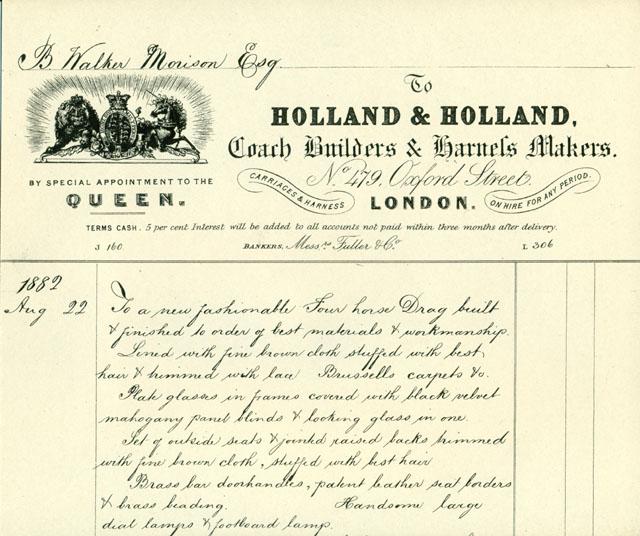 B Walker Morison Esq.
To
HOLLAND & HOLLAND,
Coach Builders & Harness Makers.
No. 479, Oxford Street.
CARRIAGES & HARNESS
LONDON.
ON HIRE FOR ANY PERIOD.
BY SPECIAL APPOINTMENT TO THE
QUEEN.
TERMS CASH. 5 per cent Interest will be added to all accounts not paid within three months after delivery.
J 160.
BANKERS, Messrs. Fuller & Co.
L 306
1882
Aug 22 To a new fashionable Four horse Drag built
& finished to order of best materials & workmanship.
Lined with fine brown cloth stuffed with best
hair & trimmed with lace Brussells carpets &c.
Plate glasses in frames covered with black velvet
mahogany panel blinds & looking glass in one.
Set of outside seats & jointed raised backs trimmed
with fine brown cloth, stuffed with best hair
Brass bar doorhandles, patent leather seat borders
& brass beading. Handsome large
dial lamps & footboard lamp.